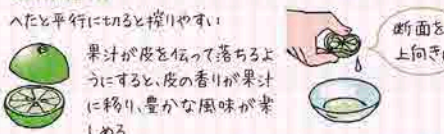 へたと平行に切ると搾りやすい
果汁が皮を伝って落ちるよ
うにすると、皮の香りが果汁
に移り、豊かな風味が楽
しめる
断面を
上向きに